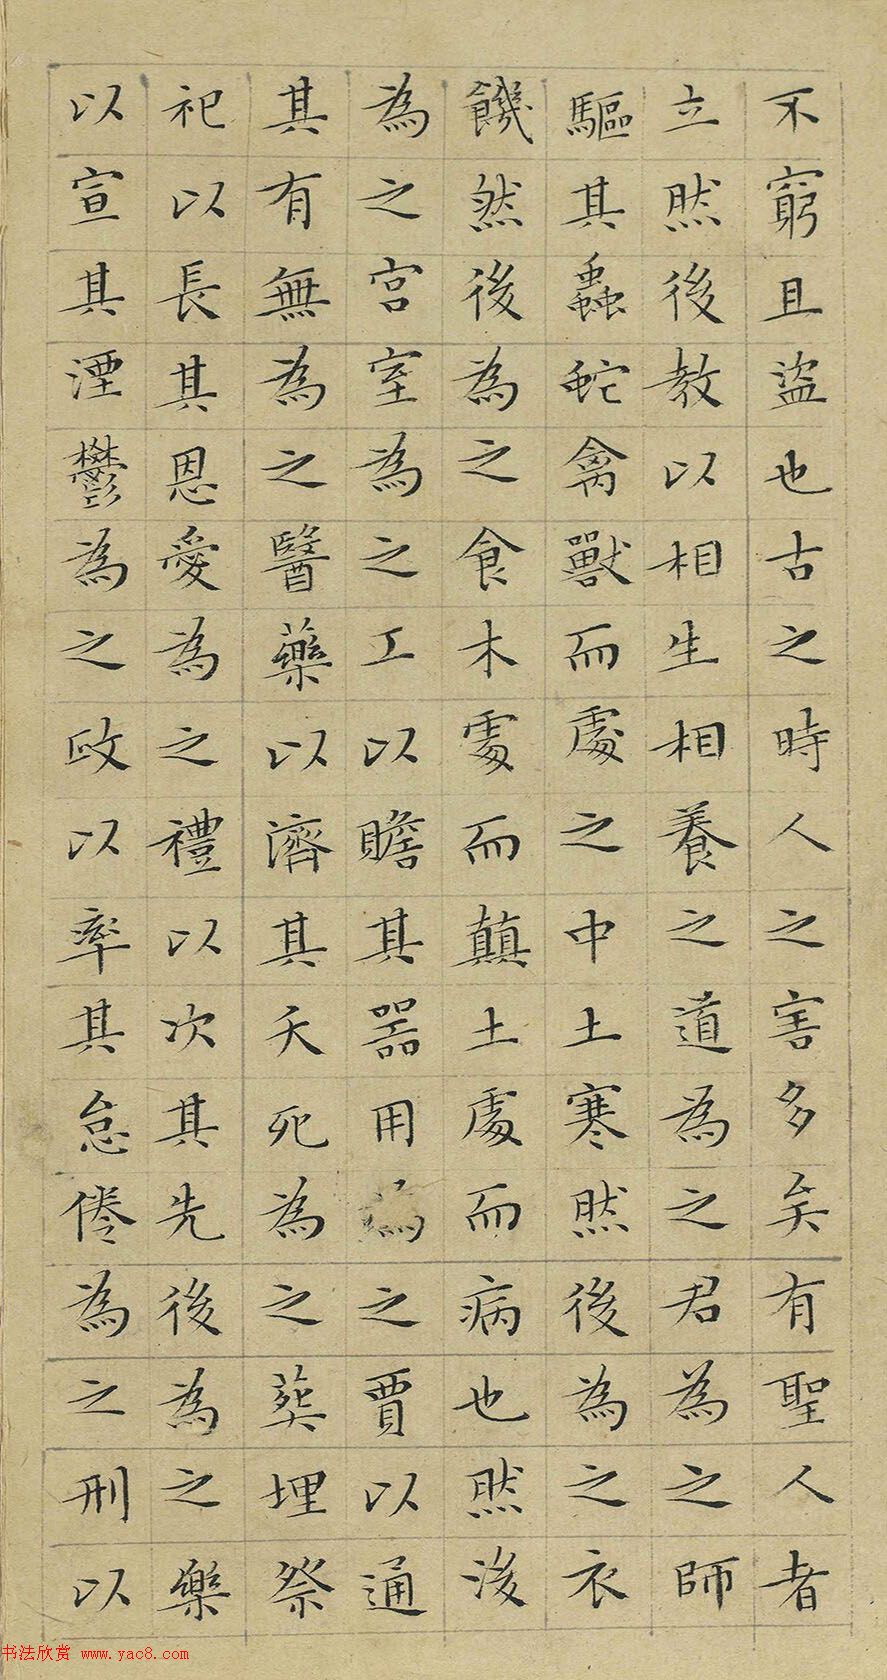 不窮且盜也古之時人之害多矣有聖人者
立然後教以相生相養之道為之君為之師
驅其蟲蛇禽獸而處之中土寒然後為之衣
饑然後為之食木處而顛土處而病也然後
為之宮室為之工以贍其器用為之賈以通
其有無為之醫藥以濟其夭死為之葬埋祭
祀以長其恩愛為之禮以次其先後為之樂
以宣其湮鬱為之政以率其怠倦為之刑以
书法欣赏 www.yac8.com